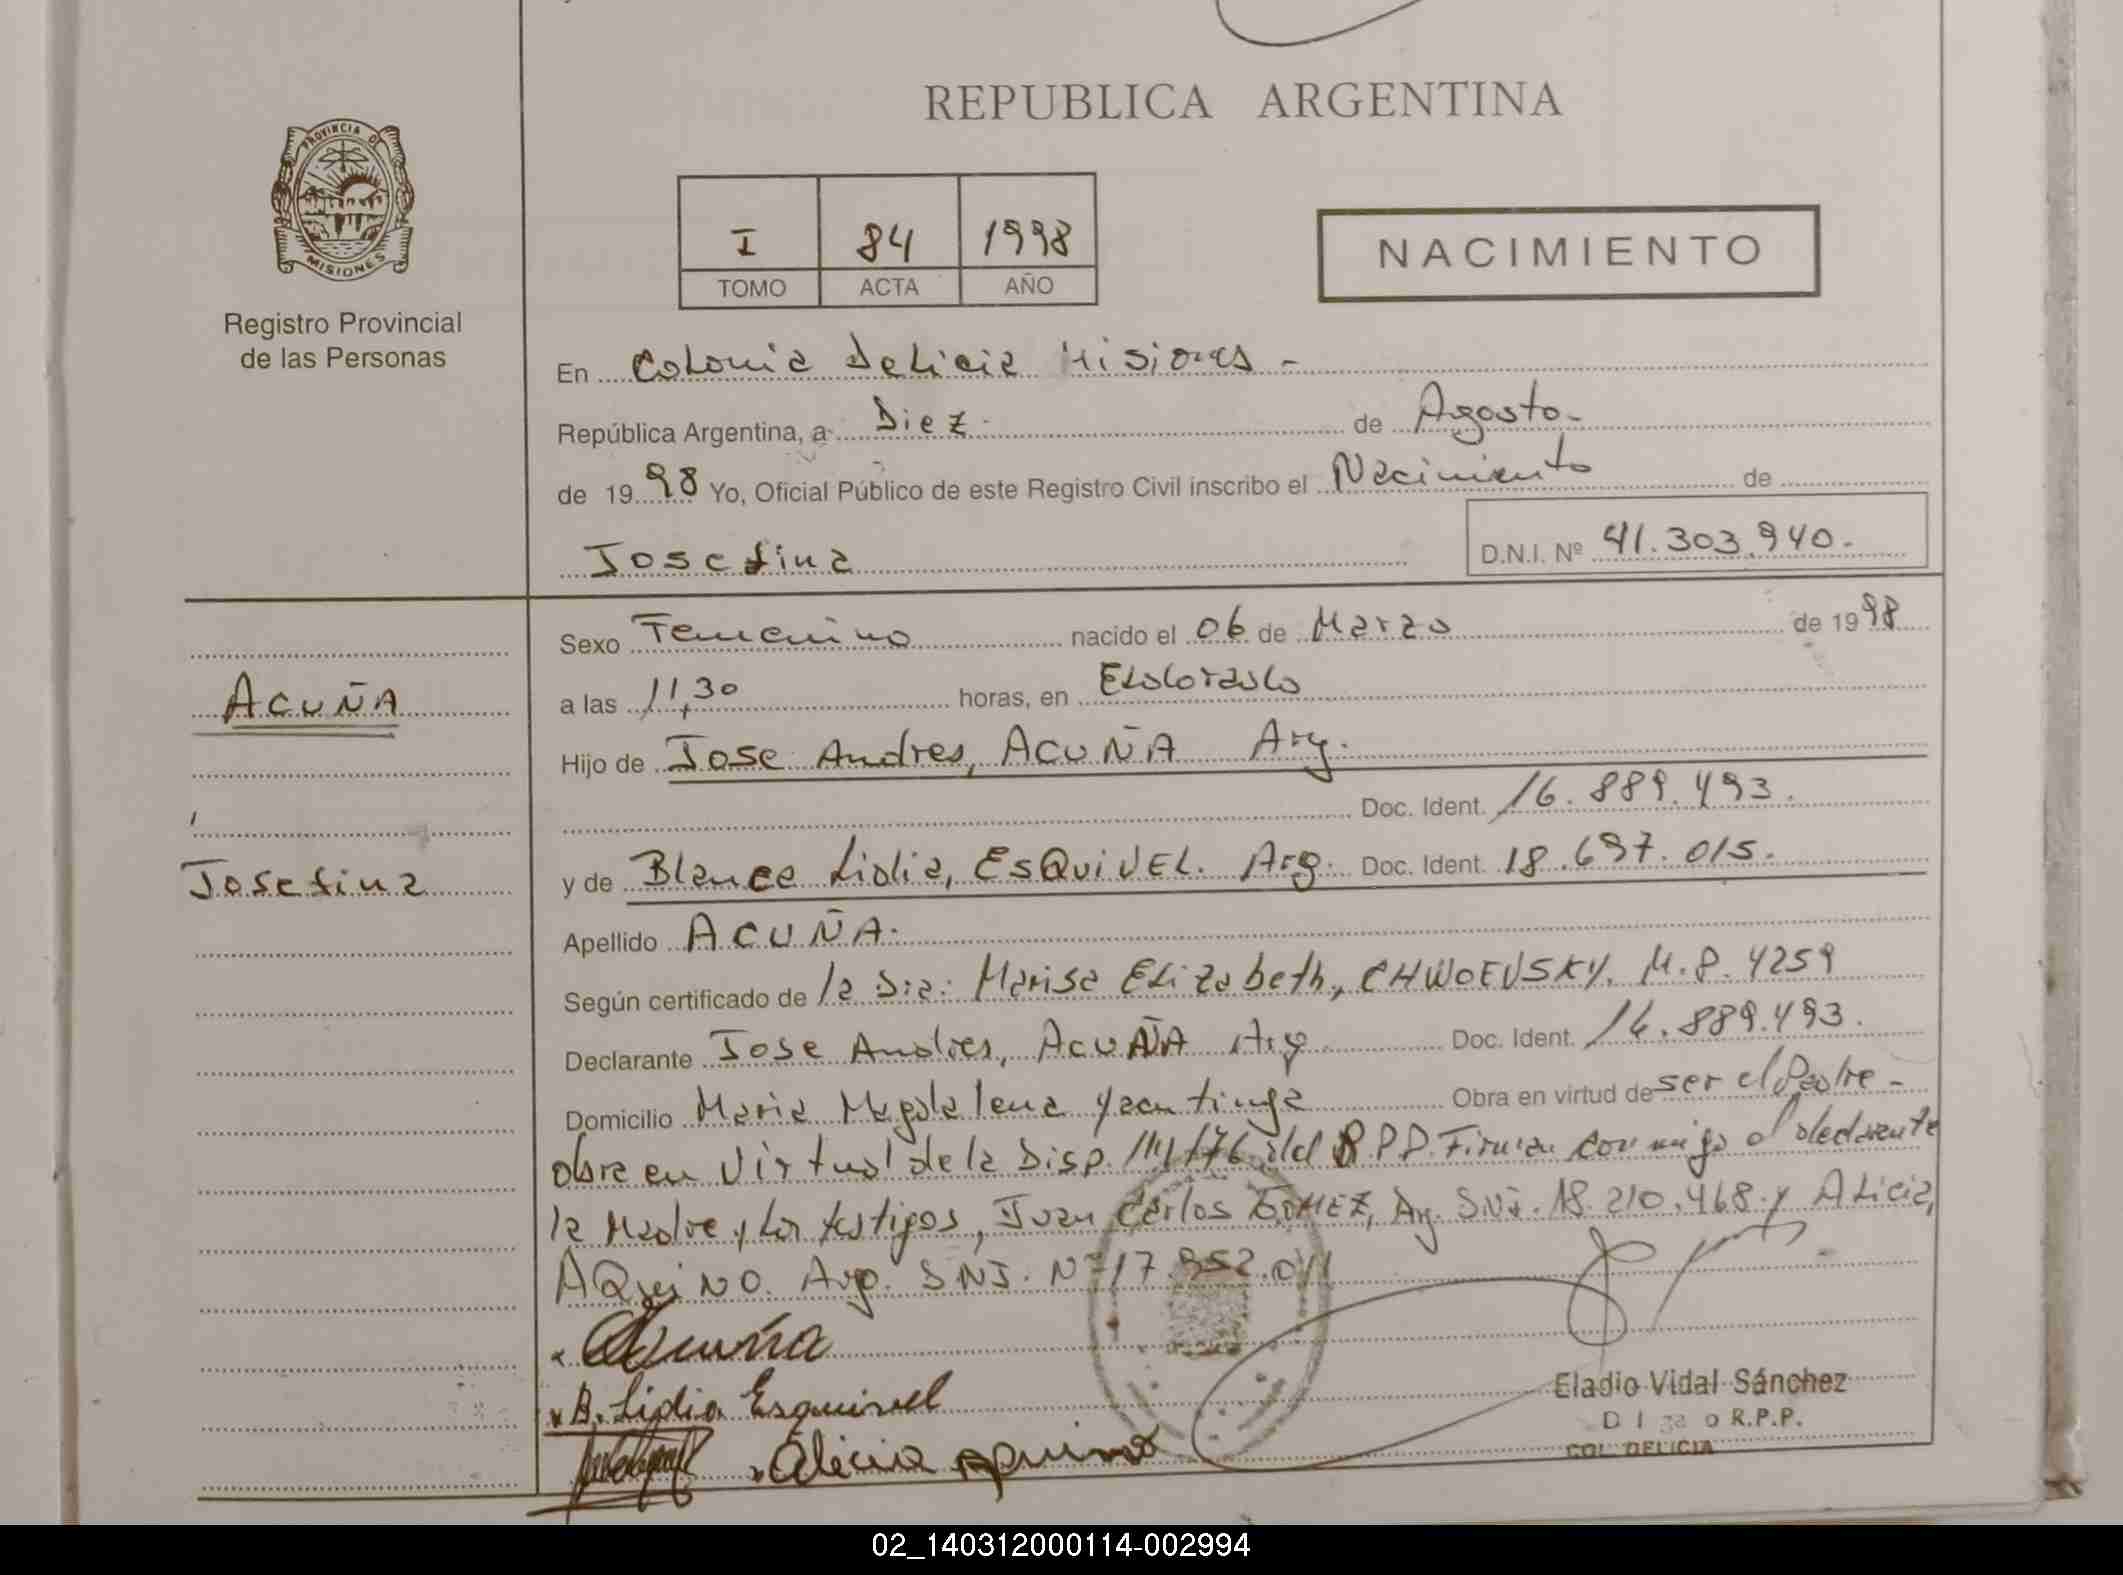 REPUBLICA ARGENTINA
PROVINCIA DE
MISIONES
Registro Provincial
de las Personas
I 84 1998
TOMO ACTA AÑO
NACIMIENTO
En Colonia Delicia Misiones -
República Argentina, a Diez - de Agosto -
de 1998 Yo, Oficial Público de este Registro Civil inscribo el Nacimiento de
Josefina D.N.I. Nº 41.303.940.-
ACUÑA
Josefina
Sexo Femenino nacido el 06 de Marzo de 1998
a las 11,30 horas, en Eldorado
Hijo de Jose Andres, ACUÑA Arg.
Doc. Ident. 16.889.493.
y de Blanca Lidia, ESQUIVEL. Arg. Doc. Ident. 18.697.015.
Apellido ACUÑA.
Según certificado de la Dra: Marisa Elizabeth, CHWOEVSKY. M.P. 4259
Declarante Jose Andres, ACUÑA Arg. Doc. Ident. 16.889.493.
Domicilio Maria Magdalena Yacutinga Obra en virtud de ser el Padre -
obra en virtud de la Disp. 111/76 del R.P.P. Firman conmigo el declarante
la Madre y los testigos, Juan Carlos GOMEZ, Arg. DNI. 18.210.468 y Alicia,
AQUINO. Arg. DNI. Nº 17.952.011
Acuña
B. Lidia Esquivel
Alicia Aquino
Eladio Vidal Sánchez
R.P.P.
COL. DELICIA
02_140312000114-002994